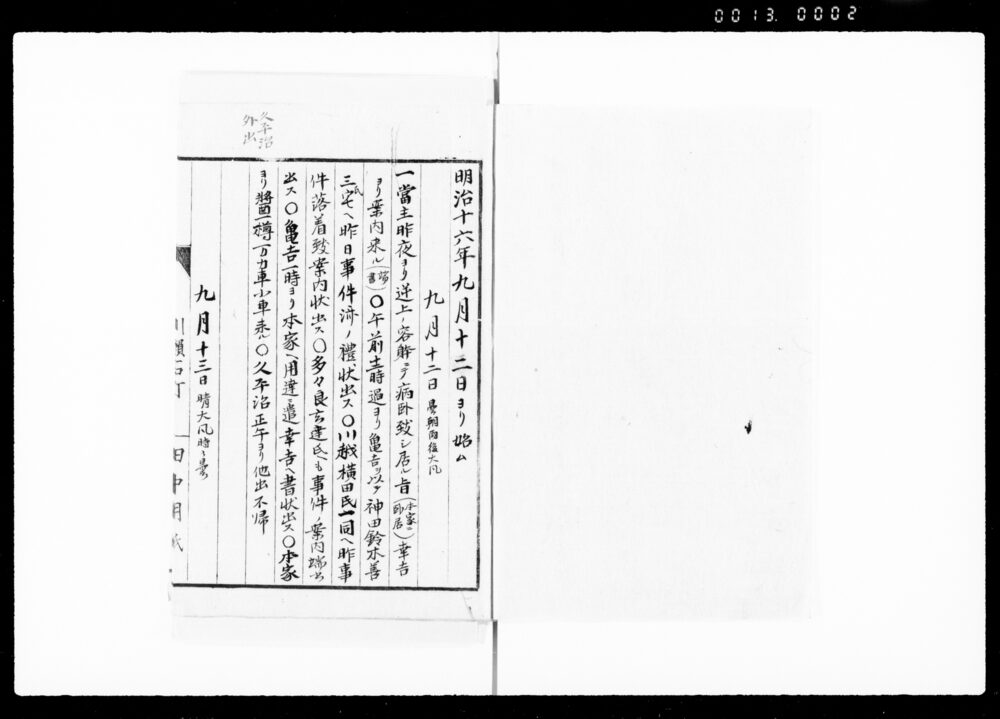 0013 0002
明治十六年九月十二日ヨリ始ム
九月十二日 曇朝雨後大風
一當主昨夜ヨリ逆上ノ容躰ニテ病臥致シ居ル旨(本家ニ卧居)幸吉
ヨリ案内来ル(端書)〇午前十一時過ヨリ亀吉ヲ以テ神田鈴木善
三氏宅ヘ昨日事件済ノ禮状出ス〇川越横田氏一同ヘ昨事
件落着致案内状出ス〇多々良玄達氏ヘモ事件ノ案内端書
出ス〇亀吉一時ヨリ本家ヘ用達ニ遣幸吉ヘ書状出ス〇本家
ヨリ醤一樽万力車小車来ル〇久平治正午ヨリ他出不帰
久平治
外出
九月十三日 晴大風時々曇
川瀬石町
田中用紙